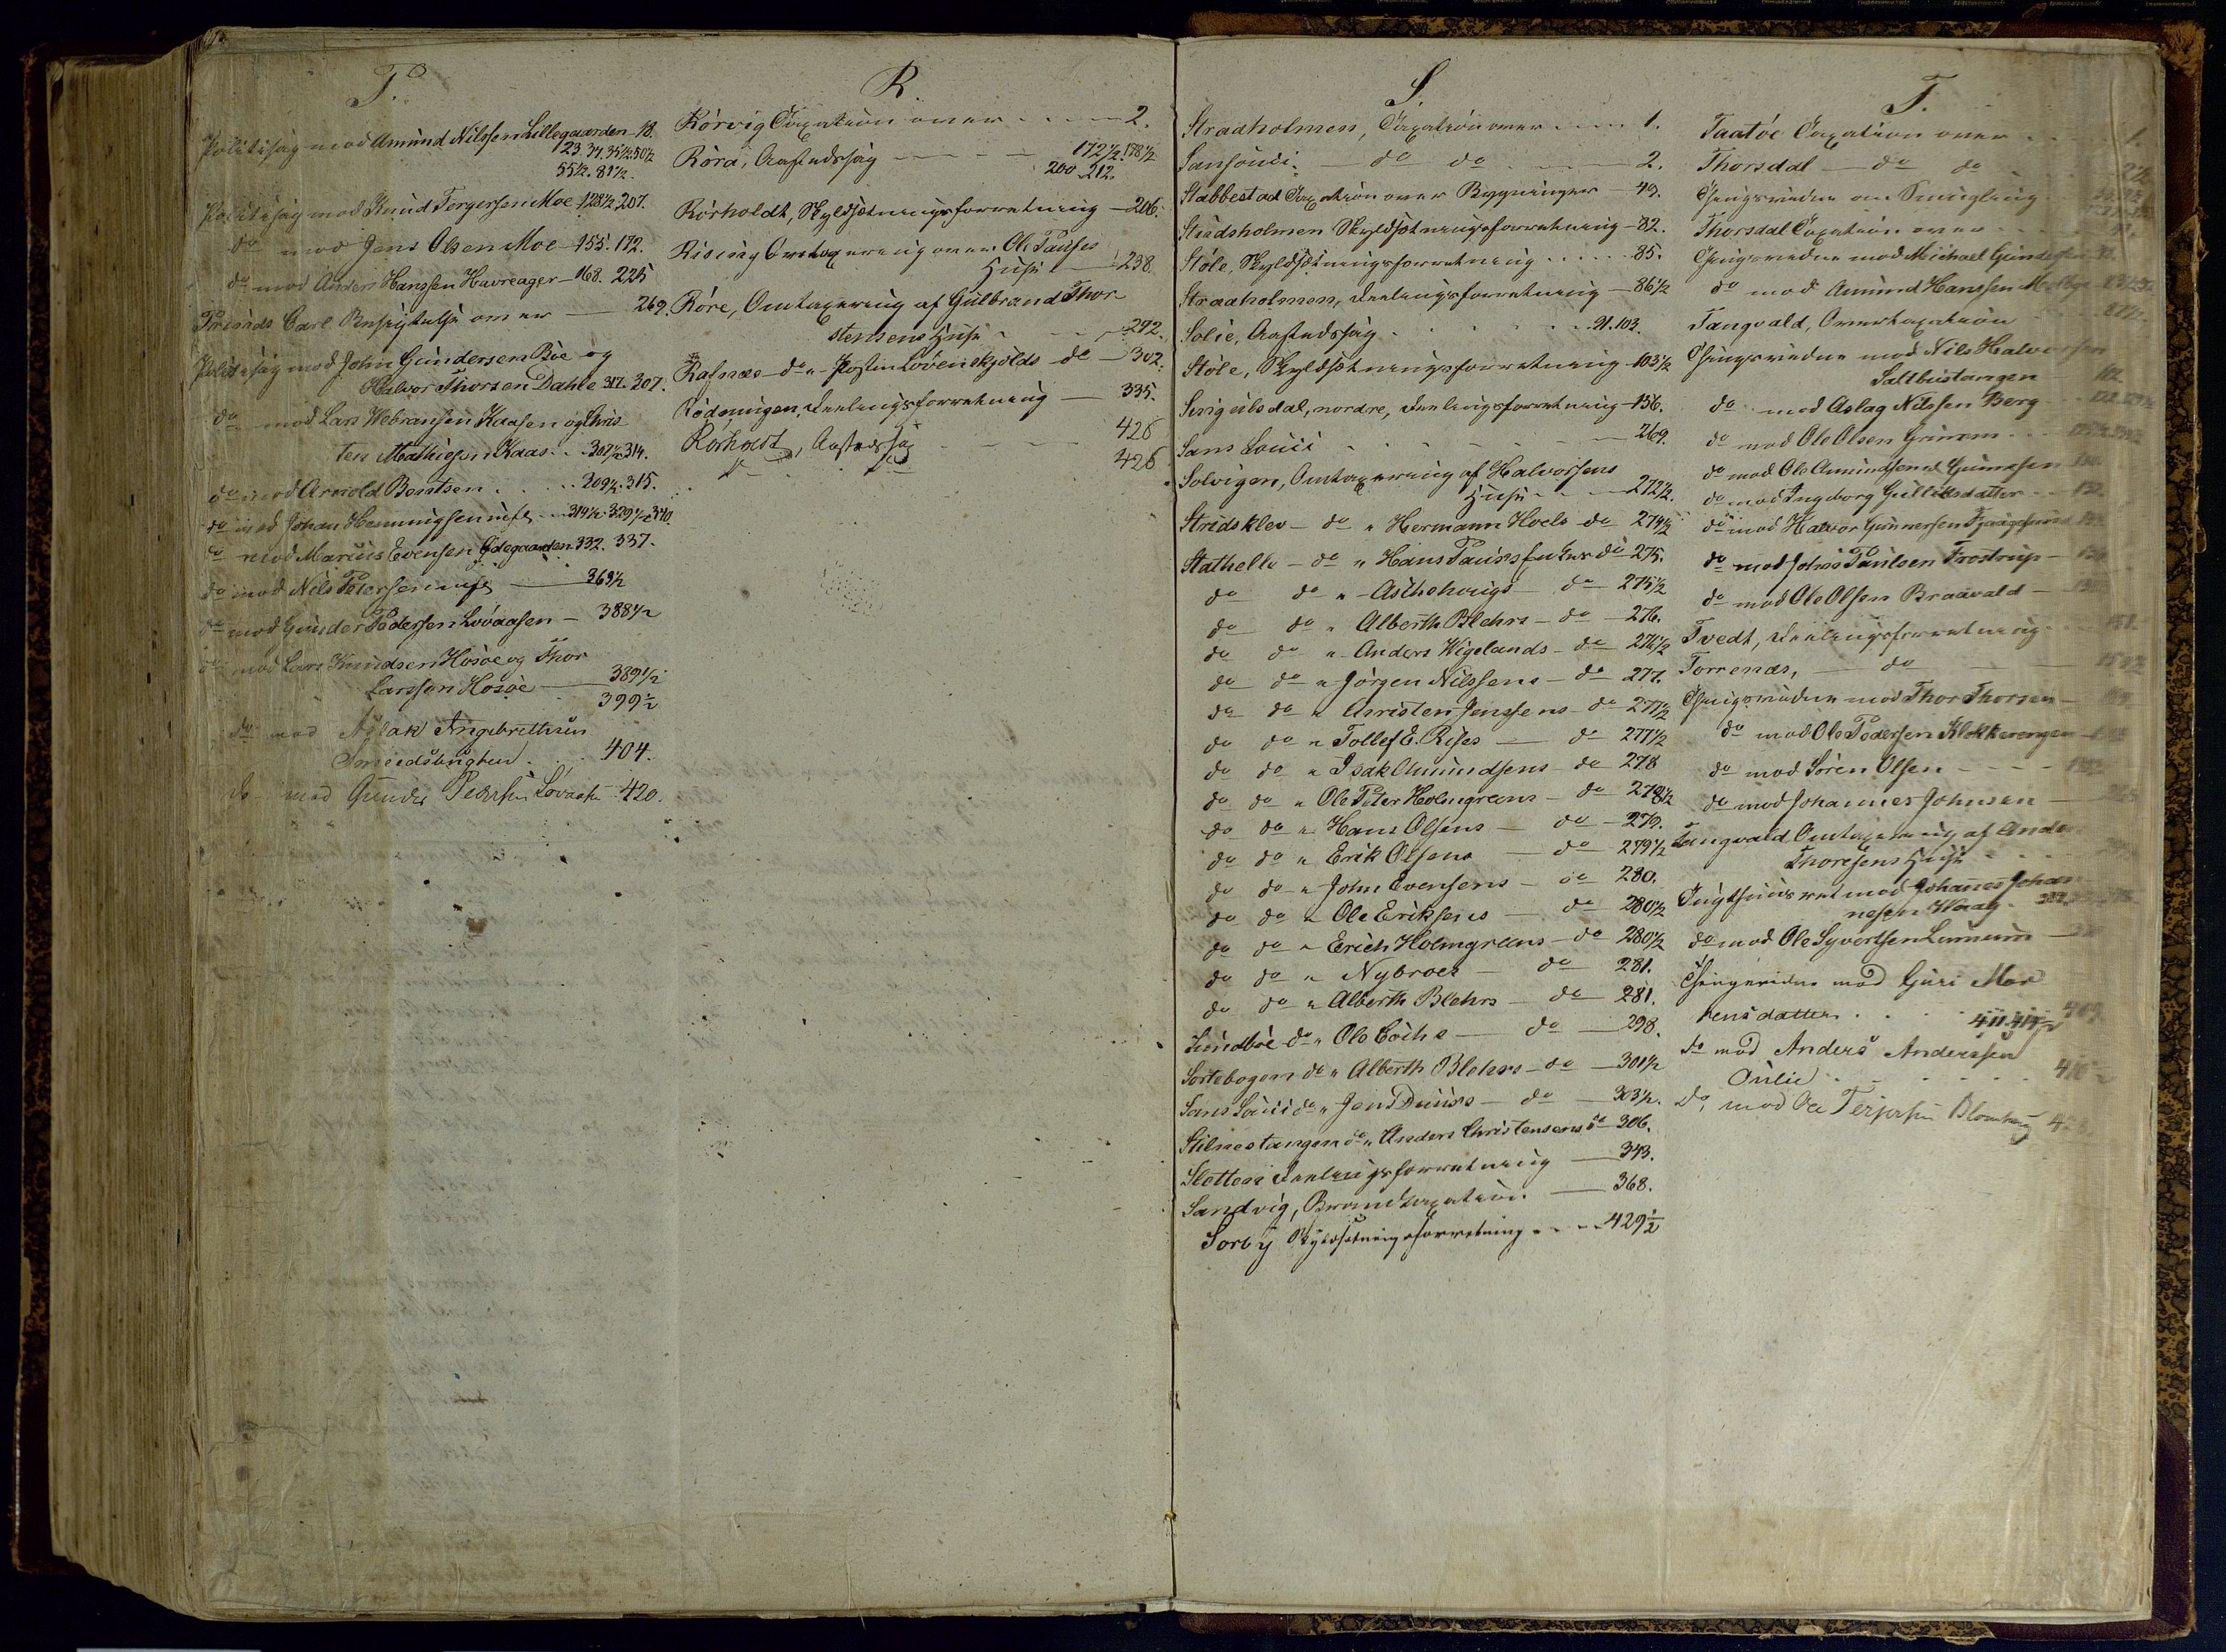 P.
Politisag mod Amund Nilssen Lillegaarden 18.
23. 34. 35½. 50½
55½. 81½.
Politisag mod Knud Torgersen Moe 128½. 207.
do mod Jens Olsen Moe 155. 172.
do mod Anders Hanssen Havreager 168. 225
Prinds Carl Besigtelse over 269.
Politisag mod John Gundersen Böe og
Halvor Thorsen Dahle 317. 307.
do mod Lars Webransen Kaasen og Chris
ten Mathiesen Kaas 307½ 314.
do mod Arnold Berntsen 309½. 315.
do mod Johan Henningsen 314½ 329½ 340.
do mod Marius Evensen Ödegaarden 332. 337.
do mod Nils Petersen 363½
do mod Gunder Pedersen Lövaasen 388½
do mod Lars Knudsen Hosöe og Thor
Larssen Hosöe 389½
399½
do mod Aslak Ingebrethsen
404.
do mod Gunder Pedersen Lövaasen 420.
R.
Rörvig Taxation over 2.
Röra, Aastedssag 172½. 178½
200. 212.
Rörholdt, Skyldsætningsforretning 206.
Rising Omtaxering over Ole Pauses
Huse 238.
Röre, Omtaxering af Gulbrand Thor
stensens Huse 292.
Rafnæs do Løvenskjolds do 302.
Rödningen, Deelingsforretning 335.
Rörholdt, Aastedssag 426
426
S.
Straaholmen, Taxation over 1.
Sansouci do do 2.
Stabbestad Taxation over Bygninger 49.
Skyldsætningsforretning 82.
Stöle, Skyldsætningsforretning 85.
Straaholmen, Deelingsforretning 86½
Solie, Aastedssag 91. 103.
Stöle, Skyldsætningsforretning 103½
nordre, Deelingsforretning 156.
Sans Souci 269.
Solvigen, Omtaxering af Halvorsens
Huse 272½.
Stridsklev do " Hermann Hoels do 274½
Stathelle do " Hans Paus's Enkes do 275.
do do " Aschehougs do 275½
do do " Alberth Blehrs do 276.
do do " Anders Wigelands do 276½
do do " Jörgen Nilssens do 277.
do do " Christen Jenssens do 277½
do do " Tollef E. Rises do 277½
do do " Isak Amundsens do 278
do do " Ole Peter Holmgreens do 278½
do do " Hans Olsens do 279.
do do " Erik Olsens do 279½
do do " John Evensens do 280.
do do " Ole Eriksens do 280½
do do " Erich Holmgreens do 280½
do do " Nybroes do 281.
do do " Alberth Blehrs do 281.
Sundböe do " Ole Cochs do 298.
Sortebogen do " Alberth Blehrs do 301½
Sans Souci do " Jens Duus's do 303½.
Stilnestangen do " Anders Christensens do 306.
Sletten Deelingsforretning 343.
Sandvig, Brandtaxation 368.
Sorby Skyldsætningsforretning 429½
T.
Taatöe Taxation over 1.
Thorsdal do do 2½
Thingsvidne om Smugling
Thorsdal Taxation over
Thingsvidne mod Michael Gundersen
do mod Amund Hanssen
Tangvald, Overtaxation
Thingsvidne mod Nils Halvorsen
Saltbustangen
do mod Aslag Nilssen Berg
do mod Ole Olsen Grimm
do mod Ole Amundsen
do mod Ingeborg Gullicsdatter
do mod Halvor Gunnersen
do mod Johan Paulsen Frostrup
do mod Ole Olsen Braavald
Tvedt, Deelingsforretning
Torrenæs, do
Thingsvidne mod Thor Thorsen
do mod Ole Pedersen Klokkerengen
do mod Sören Olsen
do mod Johannes Johnsen
Tangvald Omtaxering af Ande
Thoresens Huse
mod Johannes Johan
nesen
do mod Ole Syvertsen
Thingsvidne mod Guri Mor
tensdatter 411. 415½
do mod Anders Anderssen
do, mod Ole Terjesen